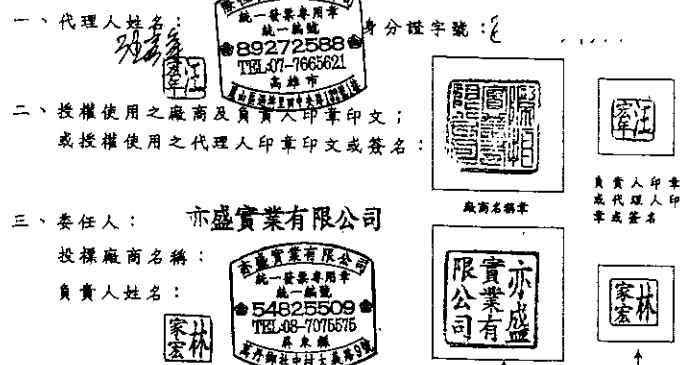 一、代理人姓名：
統一發票專用章
統一編號
89272588
TEL:07-7665621
高雄市
身分證字號：
汪
二、授權使用之廠商及負責人印章印文；
或授權使用之代理人印章印文或簽名：
汪
廠商名稱章
負責人印章
或代理人印
章或簽名
三、委任人：
亦盛實業有限公司
投標廠商名稱：
亦盛實業有限公司
統一發票專用章
統一編號
54825509
TEL:08-7075575
屏東縣
萬丹鄉社中村大義路9號
負責人姓名：
林家宏
亦盛實業有限公司
林家宏